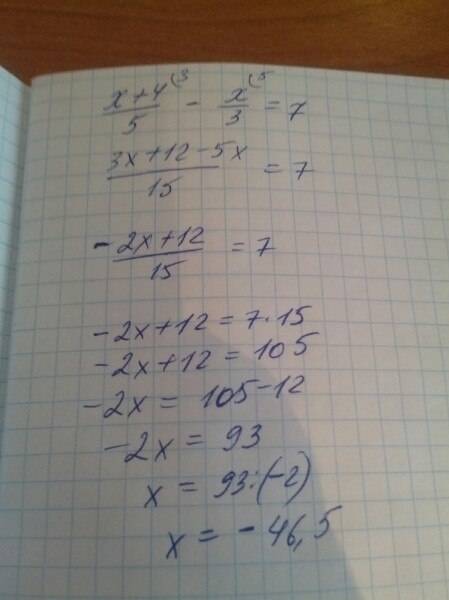 (x+4)/5 (3 - x/3 (5 = 7
(3x+12-5x)/15 = 7
-(2x+12)/15 = 7
-2x+12 = 7·15
-2x+12 = 105
-2x = 105-12
-2x = 93
x = 93:(-2)
x = -46,5